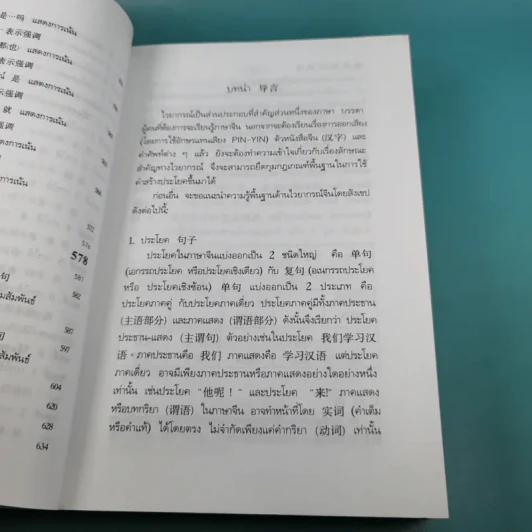 是…吗 แสดงการเน้น
表示强调
都(也) แสดงการเน้น
表示强调
是 แสดงการเน้น
表示强调
就 แสดงการเน้น
表示强调
แสดงการเน้น
572
576
578
句
582
มสัมพันธ์
587
句
597
มสัมพันธ์
604
620
628
634
บทนำ 导言
ไวยากรณ์เป็นส่วนประกอบที่สำคัญส่วนหนึ่งของภาษา บรรดา
ผู้คนที่ต้องการจะเรียนรู้ภาษาจีน นอกจากจะต้องเรียนเรื่องการออกเสียง
(โดยการใช้อักษรแทนเสียง PIN-YIN) ตัวหนังสือจีน (汉字) และ
คำศัพท์ต่าง ๆ แล้ว ยังจะต้องทำความเข้าใจเกี่ยวกับเรื่องลักษณะ
สำคัญทางไวยากรณ์ จึงจะสามารถยึดกุมกฎเกณฑ์พื้นฐานในการใช้
คำสร้างประโยคขึ้นมาได้
ก่อนอื่น จะขอแนะนำความรู้พื้นฐานด้านไวยากรณ์จีนโดยสังเขป
ดังต่อไปนี้:
1. ประโยค 句子
ประโยคในภาษาจีนแบ่งออกเป็น 2 ชนิดใหญ่ คือ 单句
(เอกรรถประโยค หรือประโยคเชิงเดี่ยว) กับ 复句 (อเนกรรถประโยค
หรือ ประโยคเชิงซ้อน) 单句 แบ่งออกเป็น 2 ประเภท คือ
ประโยคภาคคู่ กับประโยคภาคเดี่ยว ประโยคภาคคู่มีทั้งภาคประธาน
(主语部分) และภาคแสดง (谓语部分) ดังนั้นจึงเรียกว่า ประโยค
ประธาน-แสดง (主谓句) ตัวอย่างเช่นในประโยค 我们学习汉
语。ภาคประธานคือ 我们 ภาคแสดงคือ 学习汉语 แต่ประโยค
ภาคเดี่ยว อาจมีเพียงภาคประธานหรือภาคแสดงอย่างใดอย่างหนึ่ง
เท่านั้น เช่นประโยค "他呢！" และประโยค "来!" ภาคแสดง
หรือบทกริยา (谓语) ในภาษาจีน อาจทำหน้าที่โดย 实词 (คำเต็ม
หรือคำแท้) ได้โดยตรง ไม่จำกัดเพียงแค่คำกริยา (动词) เท่านั้น